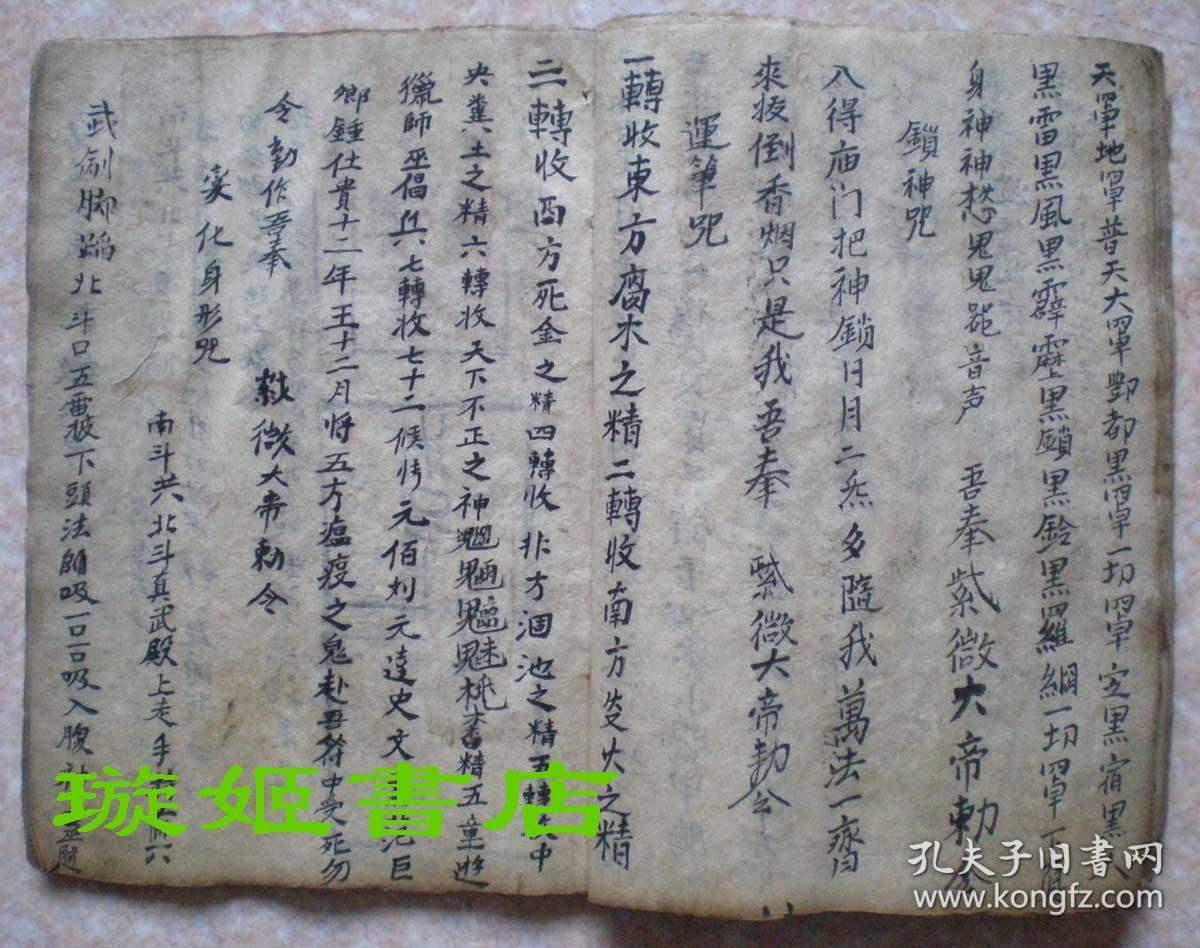 天罩地罩普天大罩酆都黑罩一切罩定黑宿黑
黑雷黑風黑霹靂黑鎖黑鈴黑羅網一切罩下
身神神愁鬼鬼 音声 吾奉紫微大帝勅令
鎖神咒
入得庙门把神鎖日月二 多隨我萬法一齊
來扳倒香烟只是我吾奉 紫微大帝勅令
運筆咒
一轉收東方腐木之精二轉收南方 火之精
三轉收西方死金之精四轉收北方涸池之精五轉收中
央糞土之精六轉收天下不正之神魍魎魑魅桃 精五童遊
獵師巫倡兵七轉收七十二候 元佰刘元達史文 范巨
鄉鍾仕貴十二年王十二月將五方瘟疫之鬼赴吾符中受死勿
令動作吾奉 紫微大帝勅令
变化身形咒
南斗共北斗真武殿上走手
武劍脚踏北斗口五雷披下頭法師吸一口吸入腹
璇姬書店
孔夫子旧書网
www.kongfz.com